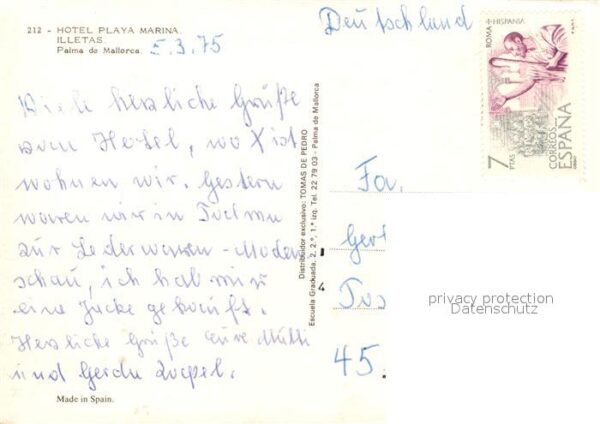 212 - HOTEL PLAYA MARINA.
ILLETAS
Palma de Mallorca.
5.3.75
Deutschland
Viele herzliche Grüße
vom Hotel, wo X ist
wohnen wir. Gestern
waren wir in
zur Lederwaren-Moden
schau, ich hab mir
eine Jacke gekauft.
Herzliche Grüße Eure Mutti
und Gerda
Made in Spain.
Distribuidor exclusivo: TOMAS DE PEDRO
Escuela Graduada, 2, 2.º, 1.ª izq. Tel. 22 79 03 - Palma de Mallorca
4
Fa.
45.
ROMA + HISPANIA
7
PTAS
CORREOS
ESPAÑA
privacy protection
Datenschutz